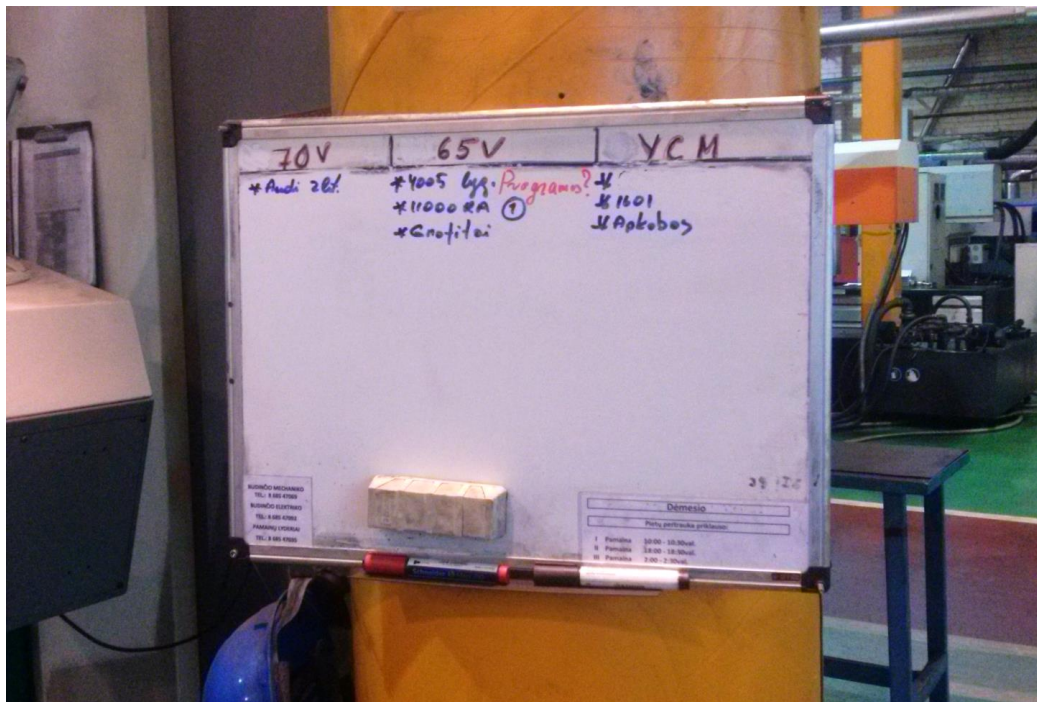 70V
65V
YCM
* Audi 2 št.
* 4005 lyg. Programos?
* 11000 RA 1
* Grafitai
*
* 1601
* Apkabos
BUDINČIO MECHANIKO
TEL.: 8 685 47089
BUDINČIO ELEKTRIKO
TEL.: 8 685 47092
PAMAINŲ LYDERIAI
TEL.: 8 685 47085
Dėmesio
Pietų pertrauka priklauso:
I Pamaina 10:00 - 10:30val.
II Pamaina 18:00 - 18:30val.
III Pamaina 2:00 - 2:30val.